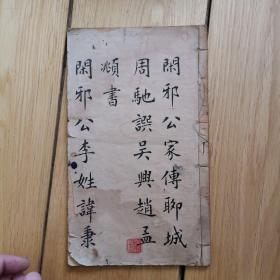 閑邪公家傳聊城
周馳譔吳興趙孟
頫書
閑邪公李姓諱秉